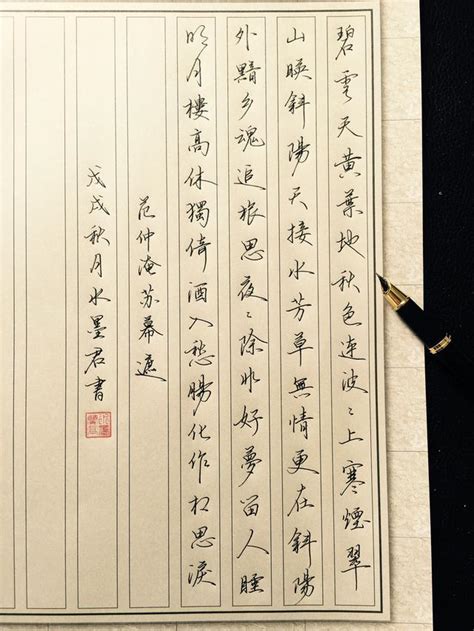 碧雲天黄葉地秋色連波〻上寒煙翠
山暎斜陽天接水芳草無情更在斜陽
外黯乡魂追旅思夜〻除非好夢留人睡
明月樓高休獨倚酒入愁腸化作相思淚
范仲淹苏幕遮
戊戌秋月水墨君書